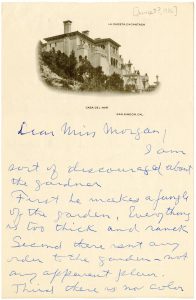 LA CUESTA ENCANTADA
CASA DEL MAR
SAN SIMEON, CAL.
Dear Miss Morgan,
I am
sort of discouraged about
the gardner
First he makes a jungle
of the garden. Everything
is too thick and rank
Second there isn't any
order to the garden - not
any apparent plan.
Third there is no color